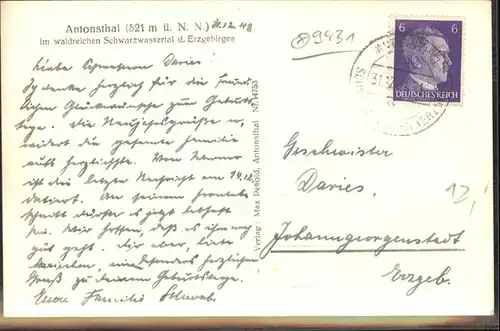 Antonsthal (521 m ü. N. N.) 31.12.43
im waldreichen Schwarzwassertal d. Erzgebirges
Liebe Schwestern Davies!
Ich danke herzlich für die freund-
lichen Glückwünsche zum Geburts-
tage. Die Neujahrsgrüße er-
widert die gesamte Familie
aufs herzlichste. Von
ist die letzte Nachricht am 14.12.
datiert. An seinem Frontab-
schnitt dürfte es jetzt lebhaft
sein. Wir hoffen, daß es ihm noch
gut geht. Dir aber, liebe
einen besonders herzlichen
Gruß zu deinem Geburtstage.
Eure Familie
Verlag: Max Pebold, Antonsthal Nr. 14753
9431
6 6
DEUTSCHES REICH
31.12
Geschwister
Davies,
Johanngeorgenstadt
Erzgeb.
12,